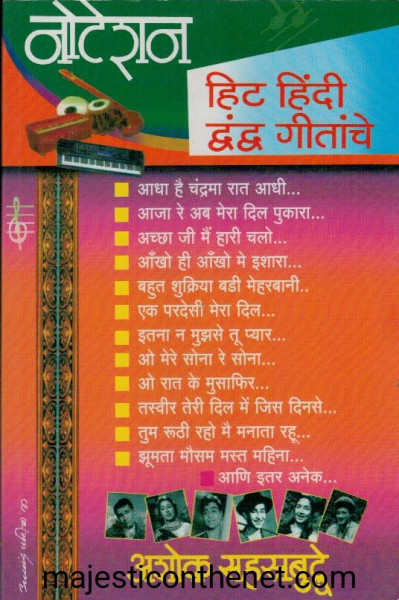 नोटेशन
हिट हिंदी
द्वंद्व गीतांचे
आधा है चंद्रमा रात आधी...
आजा रे अब मेरा दिल पुकारा...
अच्छा जी मैं हारी चलो...
आँखो ही आँखो मे इशारा...
बहुत शुक्रिया बडी मेहरबानी..
एक परदेसी मेरा दिल...
इतना न मुझसे तू प्यार...
ओ मेरे सोना रे सोना...
ओ रात के मुसाफिर...
तस्वीर तेरी दिल में जिस दिनसे...
तुम रूठी रहो मै मनाता रहू...
झूमता मौसम मस्त महिना...
आणि इतर अनेक...
अशोक सहस्रबुद्धे
majesticonthenet.com